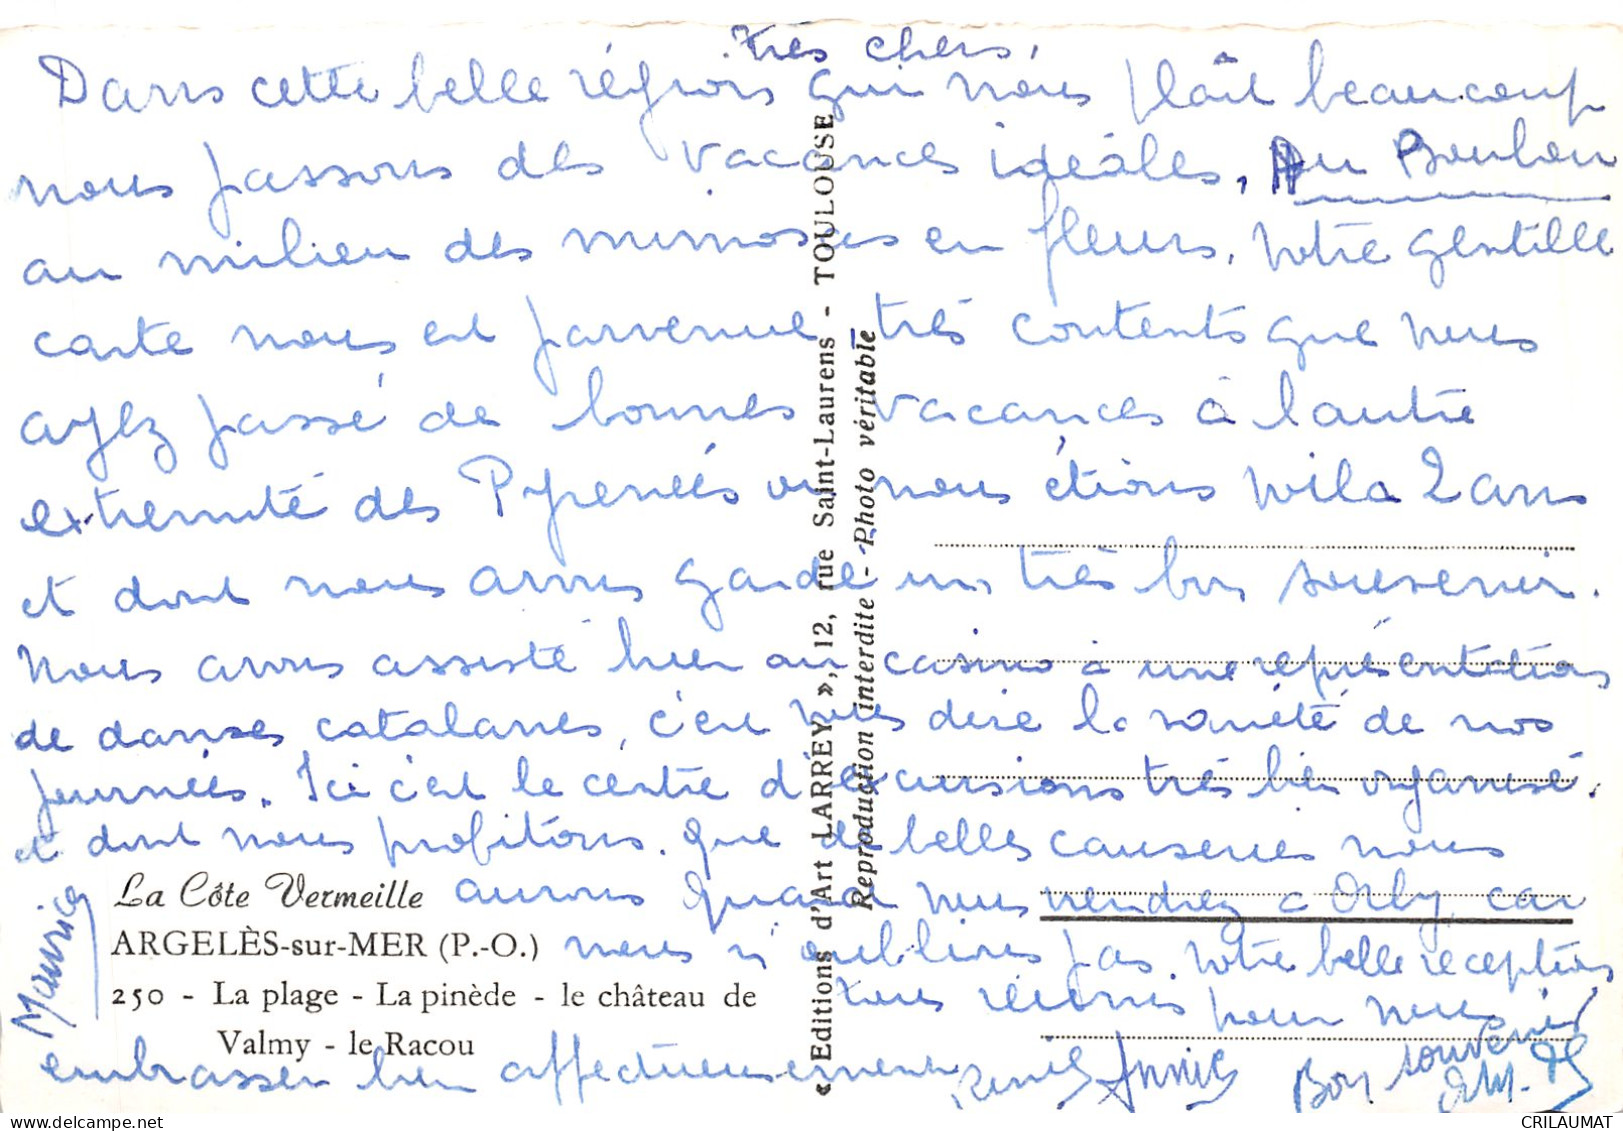 très chers,
Dans cette belle région qui nous plaît beaucoup
nous passons des vacances idéales, Au Boulou
au milieu des mimosas en fleurs. Votre gentille
carte nous est parvenue très contents que vous
ayez passé de bonnes vacances à l'autre
extremité des Pyrenées où nous étions voila 2 ans
et dont nous avons gardé un très bon souvenir.
Nous avons assisté hier au casino à une représentation
de danses catalanes, c'est vous dire la variété de nos
journées. Ici c'est le centre d'excursions très bien organisé.
et dont nous profitons. que de belles causeries nous
aurons quand vous viendrez a Orly, car
nous n'oublions pas. Votre belle reception
tous réunis pour vous
embrasser bien affectueusement
Maurice
Renée Annie
Bon souvenir
La Côte Vermeille
ARGELÈS-sur-MER (P.-O.)
250 - La plage - La pinède - le château de
Valmy - le Racou
« Editions d'Art LARREY », 12, rue Saint-Laurens - TOULOUSE
Reproduction interdite - Photo véritable
delcampe.net
CRILAUMAT